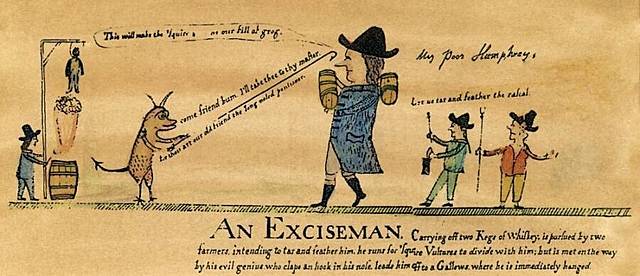 This will make the 'Squire & us our fill of grog.
My Poor Humphrey,
come friend bum. I'll take thee to thy master.
Let us tar and feather the rascal.
AN EXCISEMAN, Carrying off two Kegs of Whiskey, is pursued by two
farmers, intending to tar and feather him. he runs for 'Squire Vultures to divide with him; but is met on the way
by his evil genius who claps an hook in his nose, leads him off to a Gallows, where he is immediately hanged